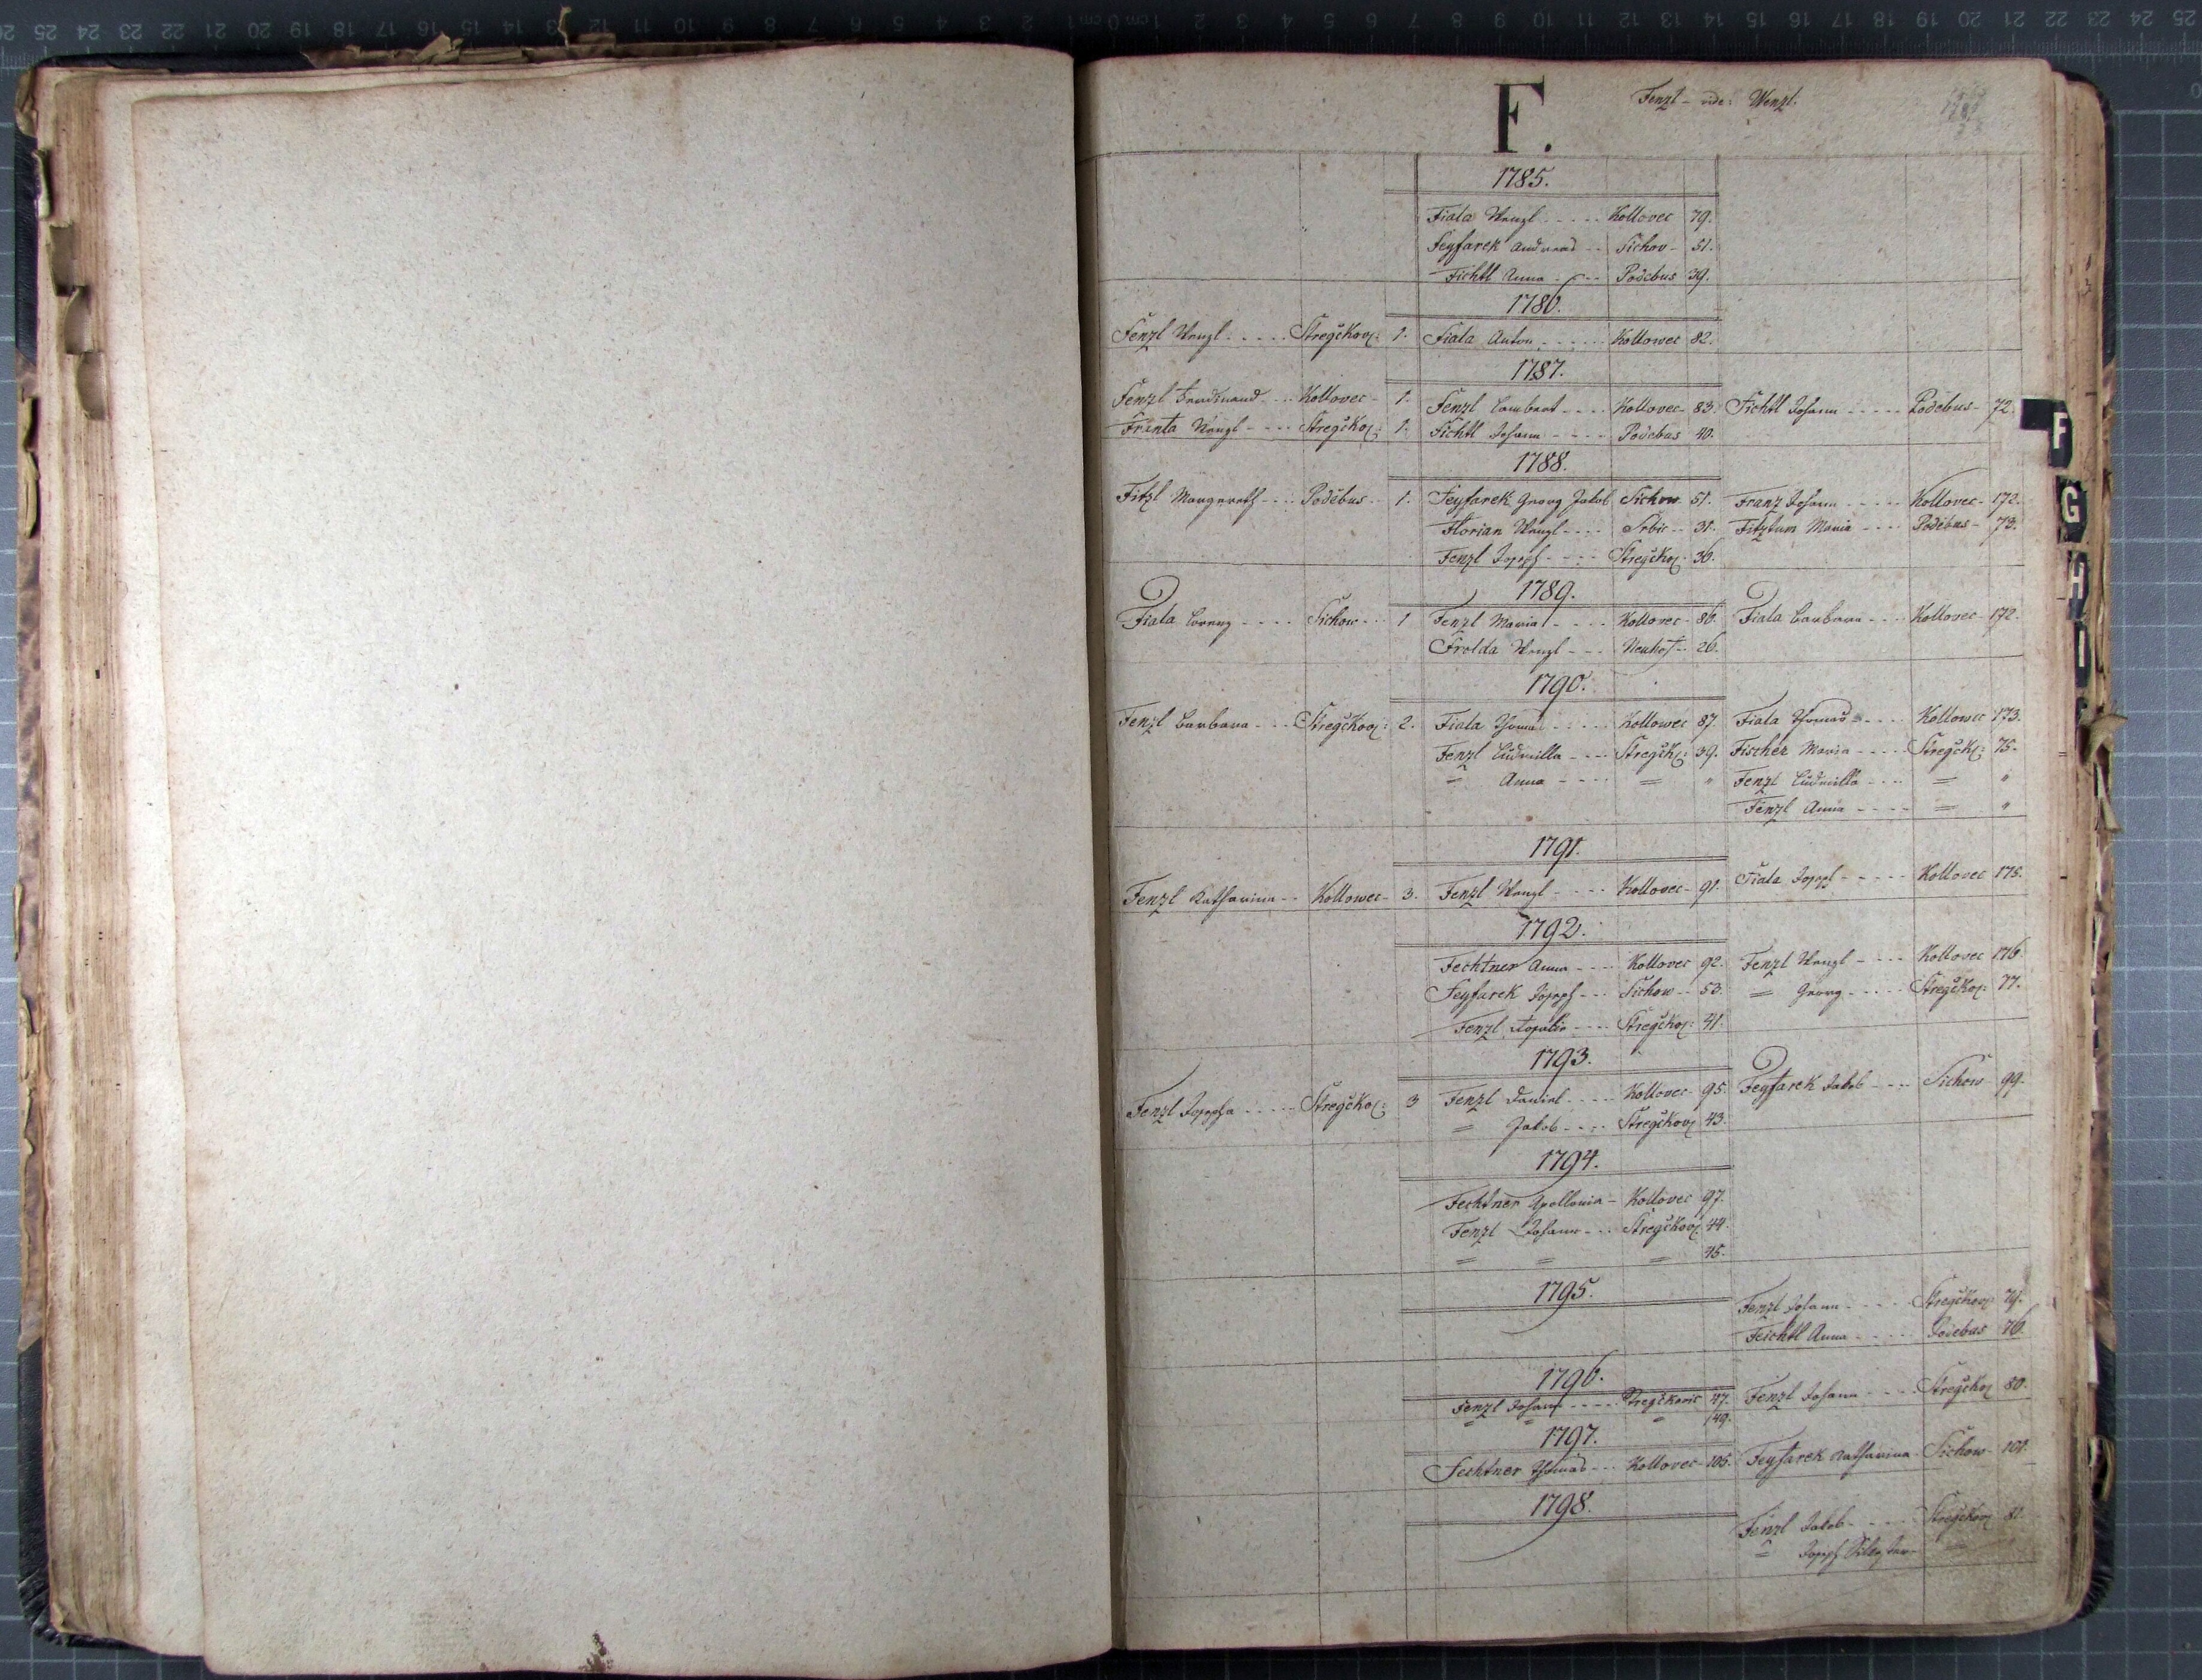 F.
Fenzl - vide: Wenzl.
1785.
Fiala Wenzl - - - - Kollovec 79.
Feyfarek Andreas - - Sichov - 51.
Fichtl Anna - - - - Podebus 39.
1786.
Fenzl Wenzl - - - - - Stregčkov: 1. Fiala Anton - - - - - Kollowec 82.
1787.
Fenzl Ferdinand - - - Kollovec - 1. Fenzl Lambert - - - - Kollovec - 83. Fichtl Johann - - - - - Podebus - 72.
Franta Wenzl - - - - Stregčko: 1. Fichtl Johann - - - - Podebus 40.
1788.
Fitzl Margareth - - - Poděbus - 1. Feyfarek Georg Jakob Sichow 51. Franz Johann - - - - - Kollovec - 172.
Florian Wenzl - - - - Srbic - - 31. Fitztum Maria - - - - Podebus - 73.
Fenzl Joseph - - - - Stregčko: 36.
1789.
Fiala Lorenz - - - - Sichow - - 1 Fenzl Maria - - - - Kollovec - 86. Fiala Barbara - - - - Kollovec - 172.
Frolda Wenzl - - - Neuhof - 26.
1790.
Fenzl Barbara - - - Stregčkov: 2. Fiala Thomas - - - - Kollowec 87. Fiala Thomas - - - - Kollowec 173.
Fenzl Ludmilla - - - Stregčk: 39. Fischer Maria - - - - - Stregčk: 75.
= Anna - - - - = " Fenzl Ludmilla - - - - = "
Fenzl Anna - - - - = "
1791.
Fenzl Katharina - - Kollowec - 3. Fenzl Wenzl - - - - Kollovec - 91. Fiala Joseph - - - - - Kollovec 175.
1792.
Fechtner Anna - - - - Kollovec 92. Fenzl Wenzl - - - - Kollovec 176.
Feyfarek Joseph - - - Sichow - - 53. = Georg - - - - - Stregčko: 77.
Fenzl - - - - Stregčko: 41.
1793.
Fenzl Josepha - - - - - Stregčko: 3 Fenzl Daniel - - - - Kollovec - 95. Feyfarek Jakob - - - - Sichow 99.
= Jakob - - - - Stregčkov: 43.
1794.
Fechtner Apollonia - Kollovec 97.
Fenzl Johann - - - Stregčkov: 44.
= = = 45.
1795.
Fenzl Johann - - - - - Stregčkov: 79.
Feichtl Anna - - - - - Podebus 76.
1796.
Fenzl Johann - - - - - Stregčkovic 47. Fenzl Johann - - - - Stregčko: 80.
= = = 49.
1797.
Fechtner Thomas - - - Kollovec - 105. Feyfarek Katharina - Sichow - 101.
1798.
Fenzl Jakob - - - - - Stregčkov: 81.
= Joseph
F
G
H
I